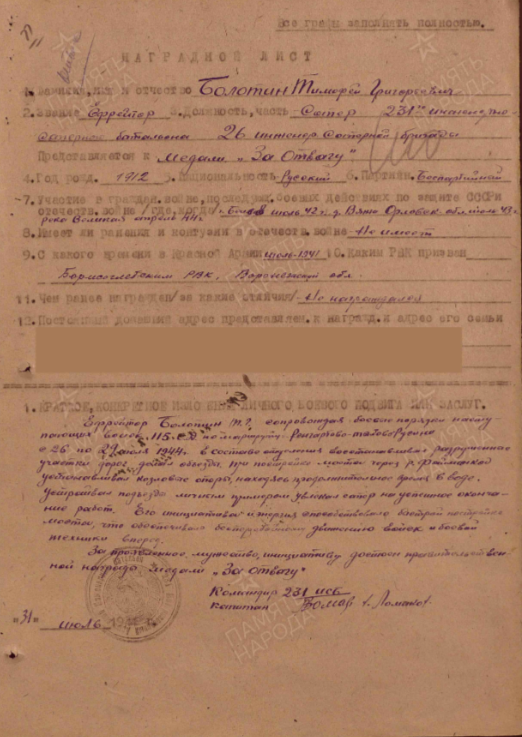 Все графы заполнять полностью.
НАГРАДНОЙ ЛИСТ
1. Фамилия, имя и отчество Болотин Тимофей Григорьевич
2. Звание Ефрейтор 3. Должность, часть Сапер 231го инженерно-
саперного батальона 26 инженер. Саперной бригады
Представляется к медали „За Отвагу"
4. Год рожд. 1912 5. Национальность Русский 6. Партийн. Беспартийный
7. Участие в граждан. войне, последующ. боевых действиях по защите СССР и
отечеств. войне /где, когда/ июль 42 г. Орловск. обл. июль 43 г.
река Великая апрель 44 г.
8. Имеет ли ранения и контузии в отечеств. войне Не имеет
9. С какого времени в Красной Армии июль-1941 10. Каким РВК призван
Борисоглебским РВК, Воронежской обл.
11. Чем ранее награжден /за какие отличия/ Не награждался
12. Постоянный домашний адрес представляем. к награжд. и адрес его семьи
1. КРАТКОЕ, КОНКРЕТНОЕ ИЗЛОЖЕНИЕ ЛИЧНОГО БОЕВОГО ПОДВИГА ИЛИ ЗАСЛУГ.
Ефрейтор Болотин Т.Г. сопровождая боевые порядки насту-
пающих войск 115 СД по маршруту
с 26 по 29 июля 1944 г. в составе отделения восстанавливал разрушенные
участки дорог, делал объезды. При постройке моста через р.
устанавливал козловые опоры, находясь продолжительное время в воде.
устраивал подъезды личным примером увлекая сапер на успешное оконча-
ние работ. Его инициатива и энергия способствовали быстрой постройке
моста, что обеспечило бесперебойное движение войск и боевой
техники вперед.
За проявленное мужество, инициативу достоин правительствен-
ной награды медали „За Отвагу"
Командир 231 исб
капитан
"31" июль 1944 г.
ПАМЯТЬ НАРОДА